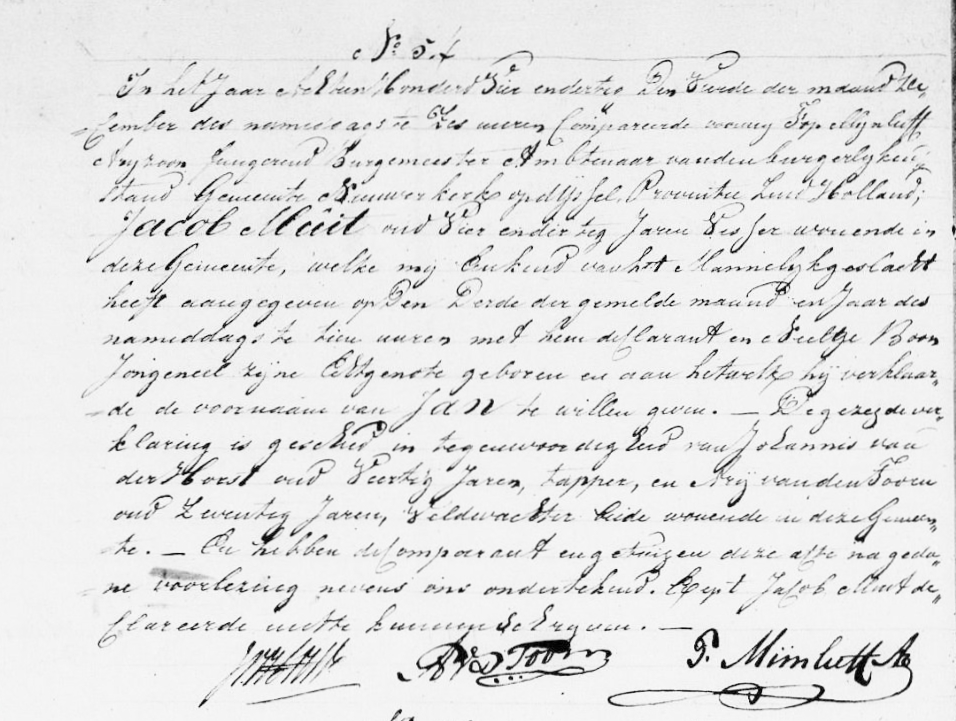 No 54
In het Jaar Achttien Honderd Vier endertig Den Vierde der maand De„
„cember des namiddags te Zes uuren Compareerde voor my Fop Mynlieff
Aryzoon fungerend Burgemeester Ambtenaar van den burgerlyken
stand Gemeente Nieuwerkerk op d'yssel, Provintie Zuid Holland;
Jacob Muit oud Vier endertig Jaren Visser wonende in
deze Gemeente, welke my Een kind van het Mannelyk geslacht
heeft aangegeven op Den Derde der gemelde maand en Jaar des
namiddags te tien uuren met hem desclarant en Neeltje Boon
Jongeneel zyne Echtgenote geboren en aan hetwelk hy verklaar„
„de de voornaam van Jan te willen geven. — De gezegde ver„
klaring is geschied in tegenwoordigheid van Johannis van
der Horst oud Veertig Jaren, tapper, en Ary van den Toorn
oud Zeventig Jaren, Veldwachter beide wonende in deze Gemeen„
„te. — En hebben de Comparant en getuigen deze akte na geda„
„ne voorlezing nevens ons ondertekend. Exept Jacob Muit de„
Clareerde niette kunnen Schryven. —
A V D Toorn F. Mijnlieff Az